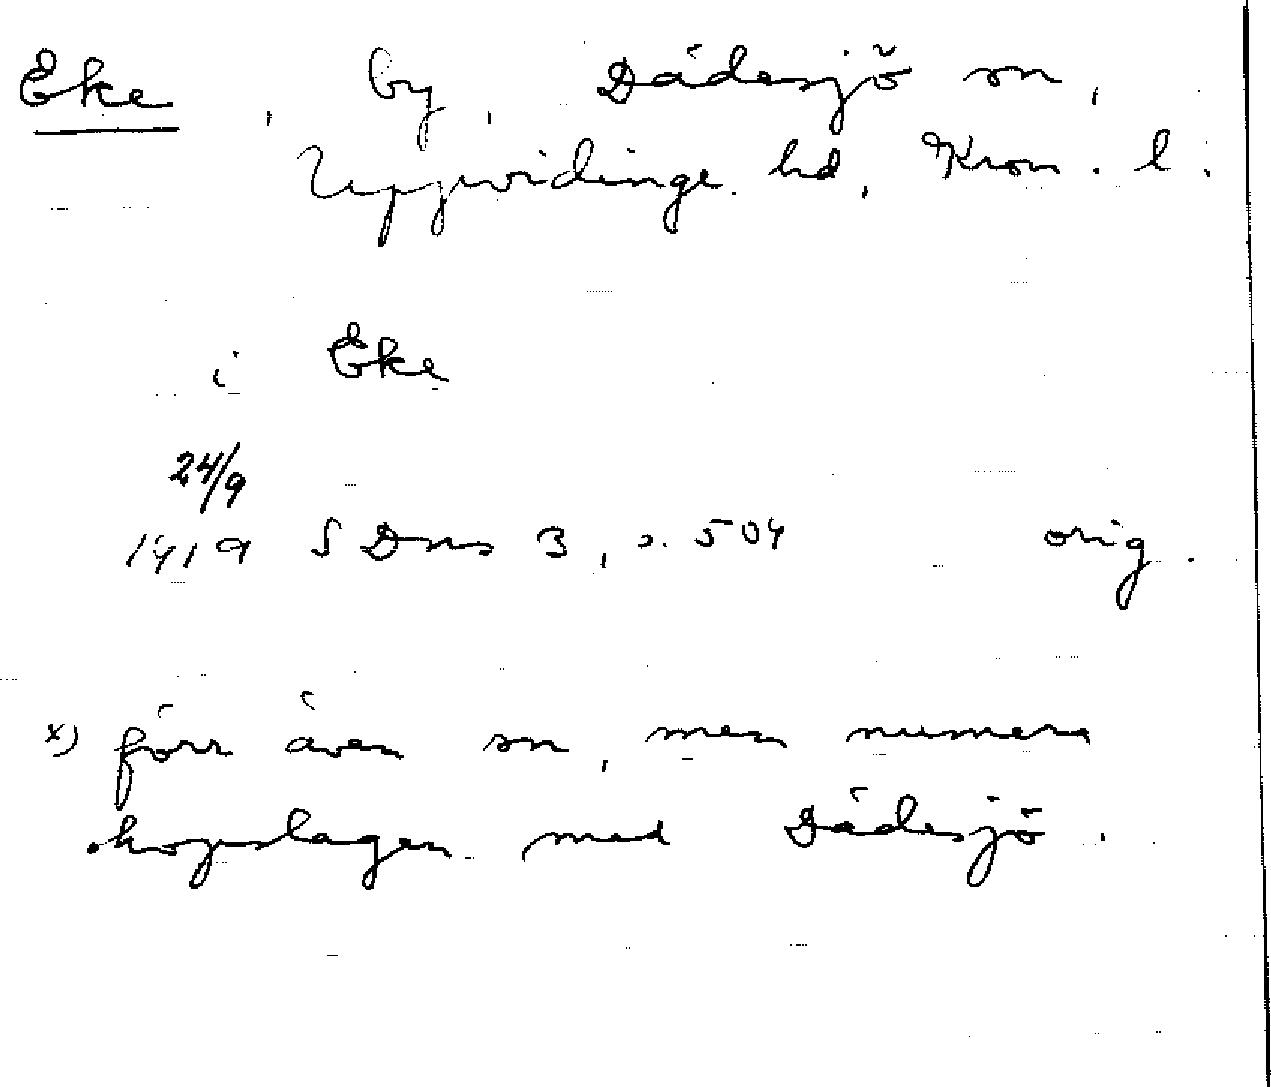 Eke, by, Dädesjö sn,
Uppvidinge hd, Kron. l.
i Eke
24/9
1419 SDns 3, s. 504 orig.
x) förr även sn, men numera
hopslagen med Dädesjö.